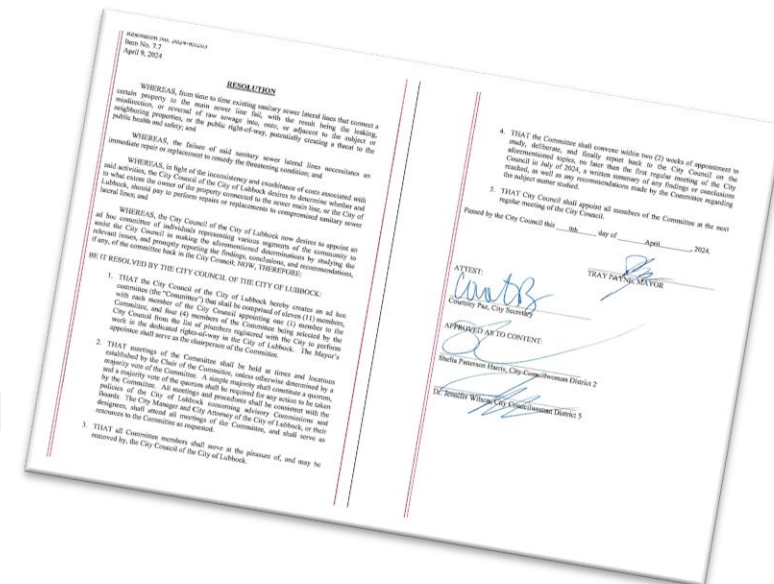 Resolution No. 2024-R0203
Item No. 7.7
April 9, 2024
RESOLUTION
WHEREAS, from time to time existing sanitary sewer lateral lines that connect a
certain property to the main sewer line fail, with the result being the leaking,
misdirection, or reversal of raw sewage into, onto, or adjacent to the subject or
neighboring properties, or the public right-of-way, potentially creating a threat to the
public health and safety; and
WHEREAS, the failure of said sanitary sewer lateral lines necessitates an
immediate repair or replacement to remedy the threatening condition; and
WHEREAS, in light of the inconsistency and exorbitance of costs associated with
said activities, the City Council of the City of Lubbock desires to determine whether and
to what extent the owner of the property connected to the sewer main line, or the City of
Lubbock, should pay to perform repairs or replacements to compromised sanitary sewer
lateral lines; and
WHEREAS, the City Council of the City of Lubbock now desires to appoint an
ad hoc committee of individuals representing various segments of the community to
assist the City Council in making the aforementioned determinations by studying the
relevant issues, and promptly reporting the findings, conclusions, and recommendations,
if any, of the committee back to the City Council; NOW, THEREFORE:
BE IT RESOLVED BY THE CITY COUNCIL OF THE CITY OF LUBBOCK:
1. THAT the City Council of the City of Lubbock hereby creates an ad hoc
committee (the "Committee") that shall be comprised of eleven (11) members,
with each member of the City Council appointing one (1) member to the
Committee, and four (4) members of the Committee being selected by the
City Council from the list of plumbers registered with the City to perform
work in the dedicated rights-of-way in the City of Lubbock. The Mayor's
appointee shall serve as the chairperson of the Committee.
2. THAT meetings of the Committee shall be held at times and locations
established by the Chair of the Committee, unless otherwise determined by a
majority vote of the Committee. A simple majority shall constitute a quorum,
and a majority vote of the quorum shall be required for any action to be taken
by the Committee. All meetings and procedures shall be consistent with the
policies of the City of Lubbock concerning advisory Commissions and
Boards. The City Manager and City Attorney of the City of Lubbock, or their
designees, shall attend all meetings of the Committee, and shall serve as
resources to the Committee as requested.
3. THAT all Committee members shall serve at the pleasure of, and may be
removed by, the City Council of the City of Lubbock.
4. THAT the Committee shall convene within two (2) weeks of appointment to
study, deliberate, and finally report back to the City Council on the
aforementioned topics, no later than the first regular meeting of the City
Council in July of 2024, a written summary of any findings or conclusions
reached, as well as any recommendations made by the Committee regarding
the subject matter studied.
5. THAT City Council shall appoint all members of the Committee at the next
regular meeting of the City Council.
Passed by the City Council this 9th day of April, 2024.
TRAY PAYNE, MAYOR
ATTEST:
Courtney Paz, City Secretary
APPROVED AS TO CONTENT:
Shelia Patterson Harris, City Councilwoman District 2
Dr. Jennifer Wilson, City Councilwoman District 5